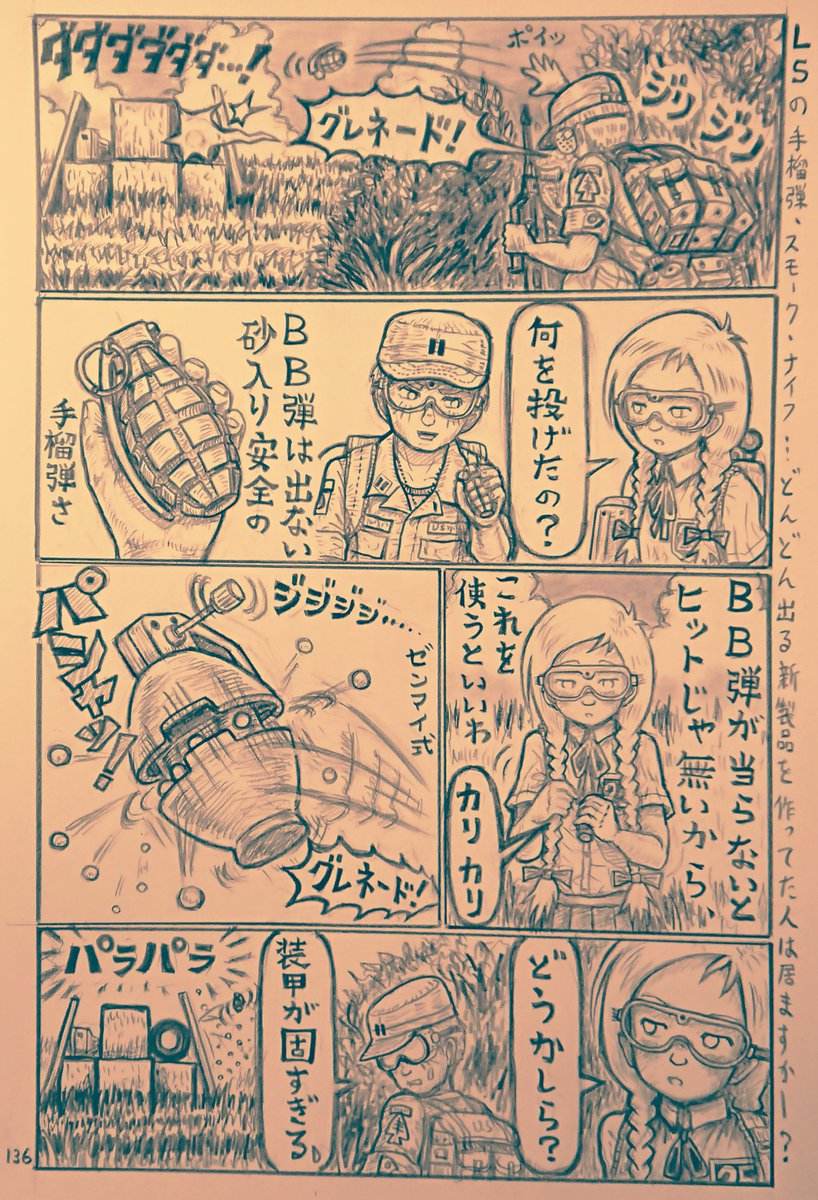 LSの手榴弾、スモーク、ナイフ…どんどん出る新製品を作ってた人は居ますかー?
ジリジリ
ポイッ
グレネード!
ダダダダダダ…!
何を投げたの?
BB弾は出ない
砂入り安全の
手榴弾さ
US
BB弾が当らないと
ヒットじゃ無いから、
これを
使うといいわ
カリカリ
ジジジジ……
ゼンマイ式
パシャッ!
グレネード!
どうかしら?
装甲が固すぎる。
US
パラパラ
136